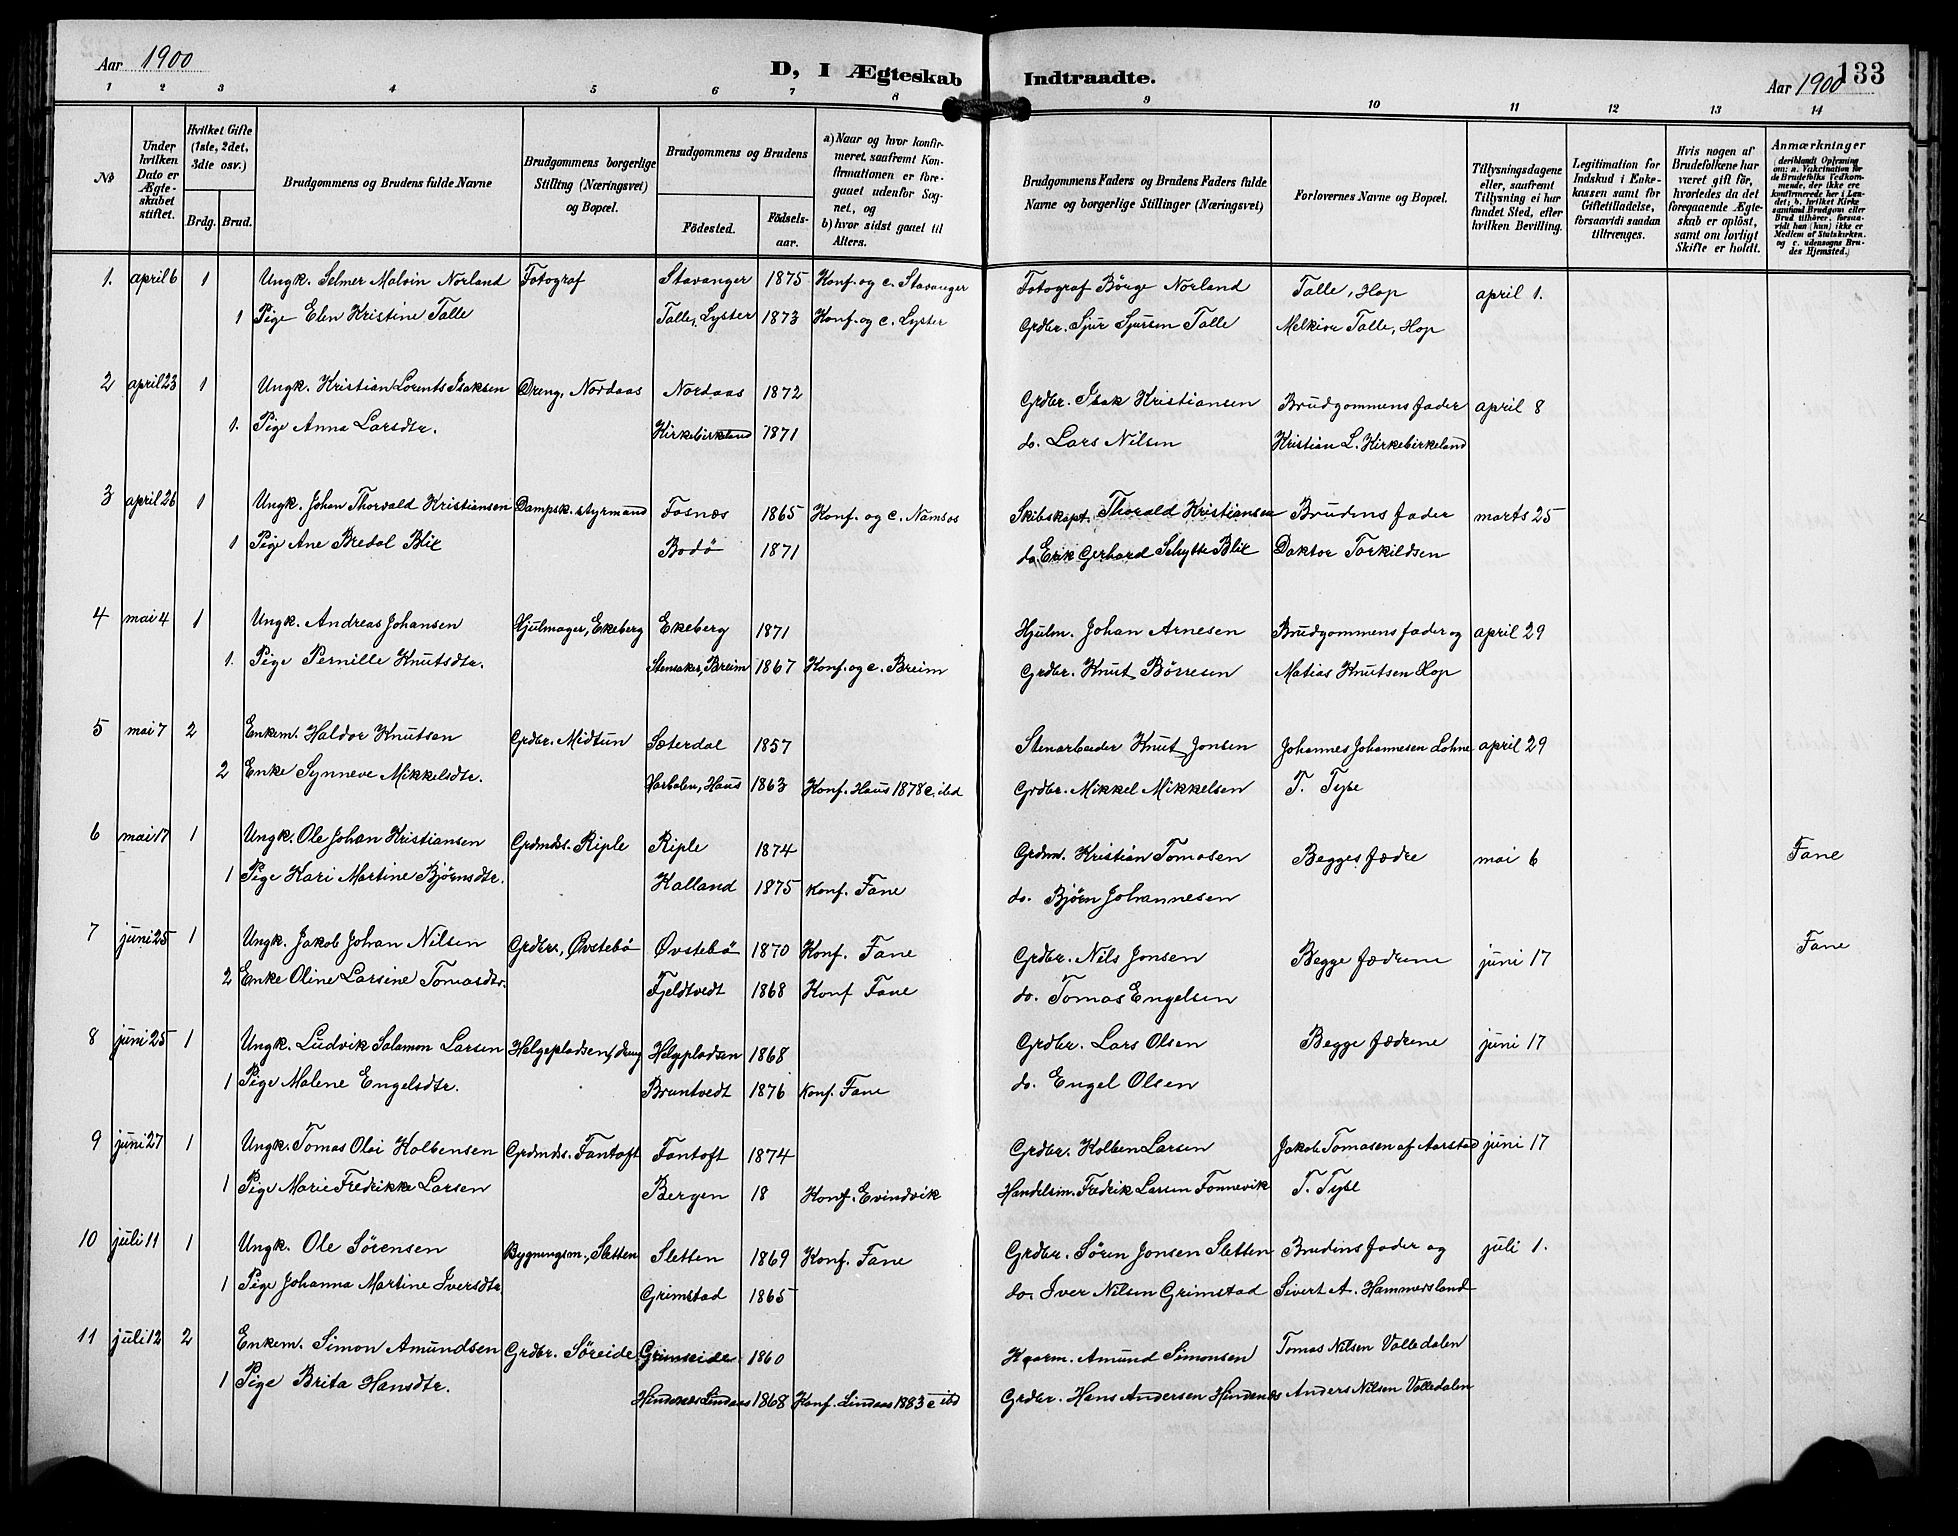 Aar 1900
D, I Ægteskab Indtraadte.
Aar 1900
133
1 2 3 4 5 6 7 8 9 10 11 12 13 14
No
Under hvilken Dato er Ægteskabet stiftet.
Hvilket Gifte (1ste, 2det, 3die osv.)
Brdg. Brud.
Brudgommens og Brudens fulde Navne
Brudgommens borgerlige Stilling (Næringsvei) og Bopæl.
Brudgommens og Brudens
Födested.
Födselsaar.
a) Naar og hvor konfirmeret, saafremt Konfirmationen er foregaaet udenfor Sognet, og
b) hvor sidst gaaet til Alters.
Brudgommens Faders og Brudens Faders fulde Navne og borgerlige Stillinger (Næringsvei)
Forlovernes Navne og Bopæl.
Tillysningsdagene eller, saafremt Tillysning ei har fundet Sted, efter hvilken Bevilling.
Legitimation for Indskud i Enkekassen samt for Giftetilladelse, forsaavidt saadan tiltrænges.
Hvis nogen af Brudefolkene har været gift för, hvorledes da det foregaaende Ægteskab er oplöst, samt om lovligt Skifte er holdt.
Anmærkninger
(deriblandt Oplysning om: a. Vaccination for de Brudefolks Vedkommende, der ikke ere konfirmerede her i Landet; b. hvilket Kirkesamfund Brudgom eller Brud tilhörer, forsaavidt han (hun) ikke er Medlem af Statskirken, og c. udensogns Brudes Hjemsted.)
1. april 6 1 Ungk. Selmer Malvin Norland Fotograf Stavanger 1875 Konf. og c. Stavanger Fotograf Börge Norland Talle, Hop april 1.
1 Pige Elen Kristine Talle Talle, Lyster 1873 Konf. og c. Lyster Grdbr. Sjur Sjursen Talle Melkior Talle, Hop
2 april 23 1 Ungk. Kristian Lorents Isaksen Dreng, Nordaas Nordaas 1872 Grdbr. Isak Kristiansen Brudgommens fader april 8
1. Pige Anna Larsdtr. Kirkebirkeland 1871 do. Lars Nilsen Kristian L. Kirkebirkeland
3 april 26 1 Ungk. Johan Thorvald Kristiansen Dampsk. styrmand Fosnæs 1865 Konf. og c. Namsos Skibskapt. Thorald Kristiansen Brudens fader marts 25
1 Pige Ane Bredal Blix Bodø 1871 do. Erik Gerhard Schytte Blix Doktor Torkildsen
4 mai 4 1 Ungk. Andreas Johansen Hjulmager, Ekeberg Ekeberg 1871 Hjulm. Johan Arnesen Brudgommens fader og april 29
1. Pige Pernille Knutsdtr. Stensaker, Breim 1867 Konf. og c. Breim Grdbr. Knut Börresen Matias Knutsen Hop
5 mai 7 2 Enkem. Haldor Knutsen Grdbr. Midtun Sæterdal 1857 Stenarbeider Knut Jonsen Johannes Johannesen Lohne april 29
2 Enke Synneve Mikkelsdtr. Haus 1863 Konf. Haus 1878 c. ibd Grdbr. Mikkel Mikkelsen T. Tysse
6 mai 17 1 Ungk. Ole Johan Kristiansen Grdmds. Riple Riple 1874 Grdm. Kristian Tomasen Begges fædre mai 6 Fane
1 Pige Kari Martine Bjørnsdtr. Halland 1875 Konf. Fane do. Bjørn Johannesen
7 juni 25 1 Ungk. Jakob Johan Nilsen Grdbr., Øvstebö Øvstebö 1870 Konf. Fane Grdbr. Nils Jonsen Begge fædrene juni 17 Fane
2 Enke Oline Larsine Tomasdtr. Fjeldtvedt 1868 Konf Fane do. Tomas Engelsen
8 juni 25 1 Ungk. Ludvik Salamon Larsen Helgepladsen, dreng Helgepladsen 1868 Grdbr. Lars Olsen Begge fædrene juni 17
1 Pige Malene Engelsdtr. Bruntvedt 1876 Konf. Fane do. Engel Olsen
9 juni 27 1 Ungk. Tomas Olai Kolbensen Grdmds. Fantoft Fantoft 1874 Grdbr. Kolben Larsen Jakob Tomasen af Aarstad juni 17
1 Pige Marie Fredrikke Larsen Bergen 18 Konf. Evindvik Handelsm. Fredrik Larsen Fonnevik T. Tysse
10 juli 11 1 Ungk. Ole Sörensen Bygningsm., Sletten Sletten 1869 Konf. Fane Grdbr. Sören Jonsen Sletten Brudens fader og juli 1.
1 Pige Johanna Martine Iversdtr. Grimstad 1865 do. Iver Nilsen Grimstad Sivert A. Hammersland
11 juli 12 2 Enkem. Simon Amundsen Grdbr. Søreide Grimseide 1860 Kaarm. Amund Simonsen Tomas Nilsen Valledalen
1 Pige Brita Hansdtr. Hindenæs Lindaas 1868 Konf. Lindaas 1883 c ibd Grdbr. Hans Andersen Hindenæs Anders Nilsen Valledalen